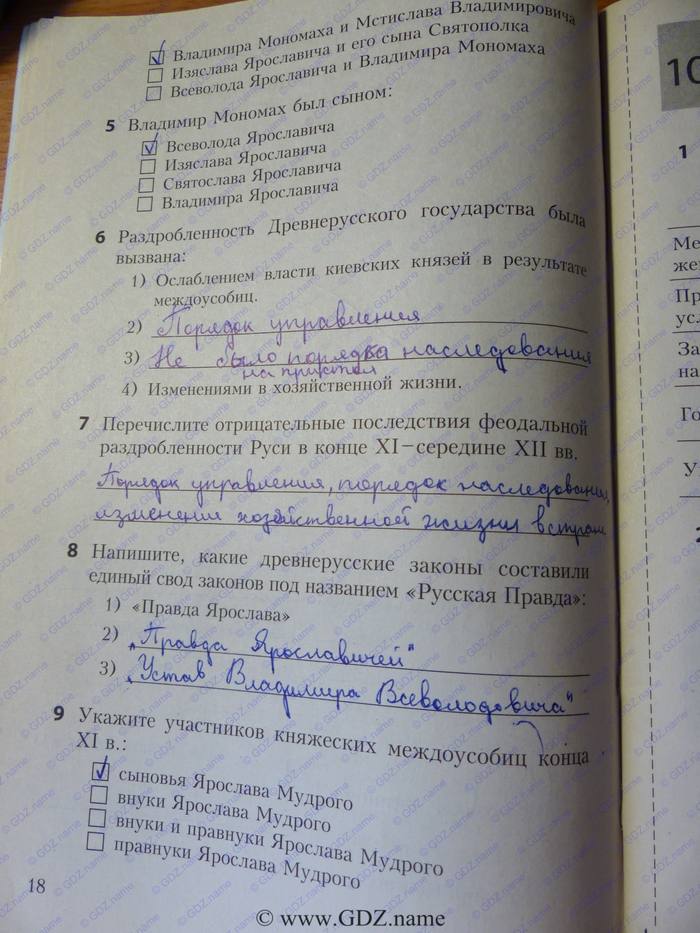 Владимира Мономаха и Мстислава Владимировича
Изяслава Ярославича и его сына Святополка
Всеволода Ярославича и Владимира Мономаха
5 Владимир Мономах был сыном:
Всеволода Ярославича
Изяслава Ярославича
Святослава Ярославича
Владимира Ярославича
6 Раздробленность Древнерусского государства была
вызвана:
1) Ослаблением власти киевских князей в результате
междоусобиц.
2) Порядок управления
3) Не было порядка наследования
на пристол
4) Изменениями в хозяйственной жизни.
7 Перечислите отрицательные последствия феодальной
раздробленности Руси в конце XI–середине XII вв.
Порядок управления, порядок наследования,
изменении хозяйственной жизни в стране
8 Напишите, какие древнерусские законы составили
единый свод законов под названием «Русская Правда»:
1) «Правда Ярослава»
2) „Правда Ярославичей"
3) „Устав Владимира Всеволодовича"
9 Укажите участников княжеских междоусобиц конца
XI в.:
сыновья Ярослава Мудрого
внуки Ярослава Мудрого
внуки и правнуки Ярослава Мудрого
правнуки Ярослава Мудрого
18
© www.GDZ.name
10
1
Ме
жен
Пр
усл
За
на
Го
У